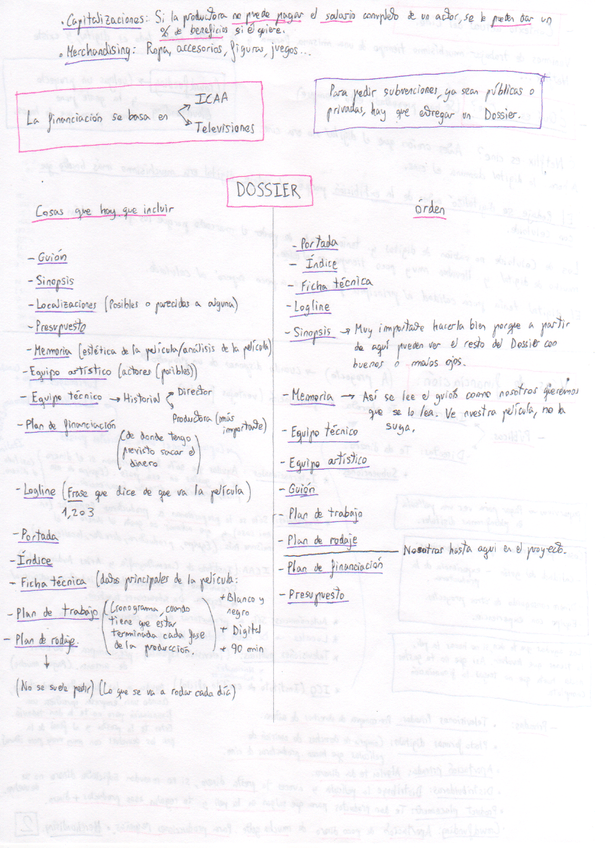 • Capitalizaciones: Si la productora no puede pagar el salario completo de un actor, se le pueden dar un
% de beneficios si él quiere.
• Merchandising: Ropa, accesorios, figuras, juegos...
La financiación se basa en
ICAA
Televisiones
Para pedir subvenciones, ya sean públicas o
privadas, hay que entregar un Dossier.
DOSSIER
Cosas que hay que incluir
- Guión
- Sinopsis
- Localizaciones (Posibles o parecidas a alguna)
- Presupuesto
- Memoria (estética de la película/análisis de la película)
- Equipo artístico (actores (posibles))
- Equipo técnico → Historial
Director
Productora (más
importante)
- Plan de financiación
(de donde tengo
previsto sacar el
dinero
- Logline (Frase que dice de que va la película)
1, 2 o 3
- Portada
- Índice
- Ficha técnica (datos principales de la película:
+ Blanco y
negro
+ Digital
+ 90 min
- Plan de trabajo (Cronograma, cuando
tiene que estar
terminada cada fase
de la producción.
- Plan de rodaje
↓
(No se suele pedir) (Lo que se va a rodar cada día)
Órden
- Portada
- Índice
- Ficha técnica
- Logline
- Sinopsis → Muy importante hacerla bien porque a partir
de aquí pueden ver el resto del Dossier con
buenos o malos ojos.
- Memoria → Así se lee el guión como nosotros queremos
que se lo lea. Ve nuestra película, no la
suya.
- Equipo técnico
- Equipo artístico
- Guión
- Plan de trabajo
- Plan de rodaje
Nosotros hasta aquí en el proyecto.
- Plan de financiación
- Presupuesto